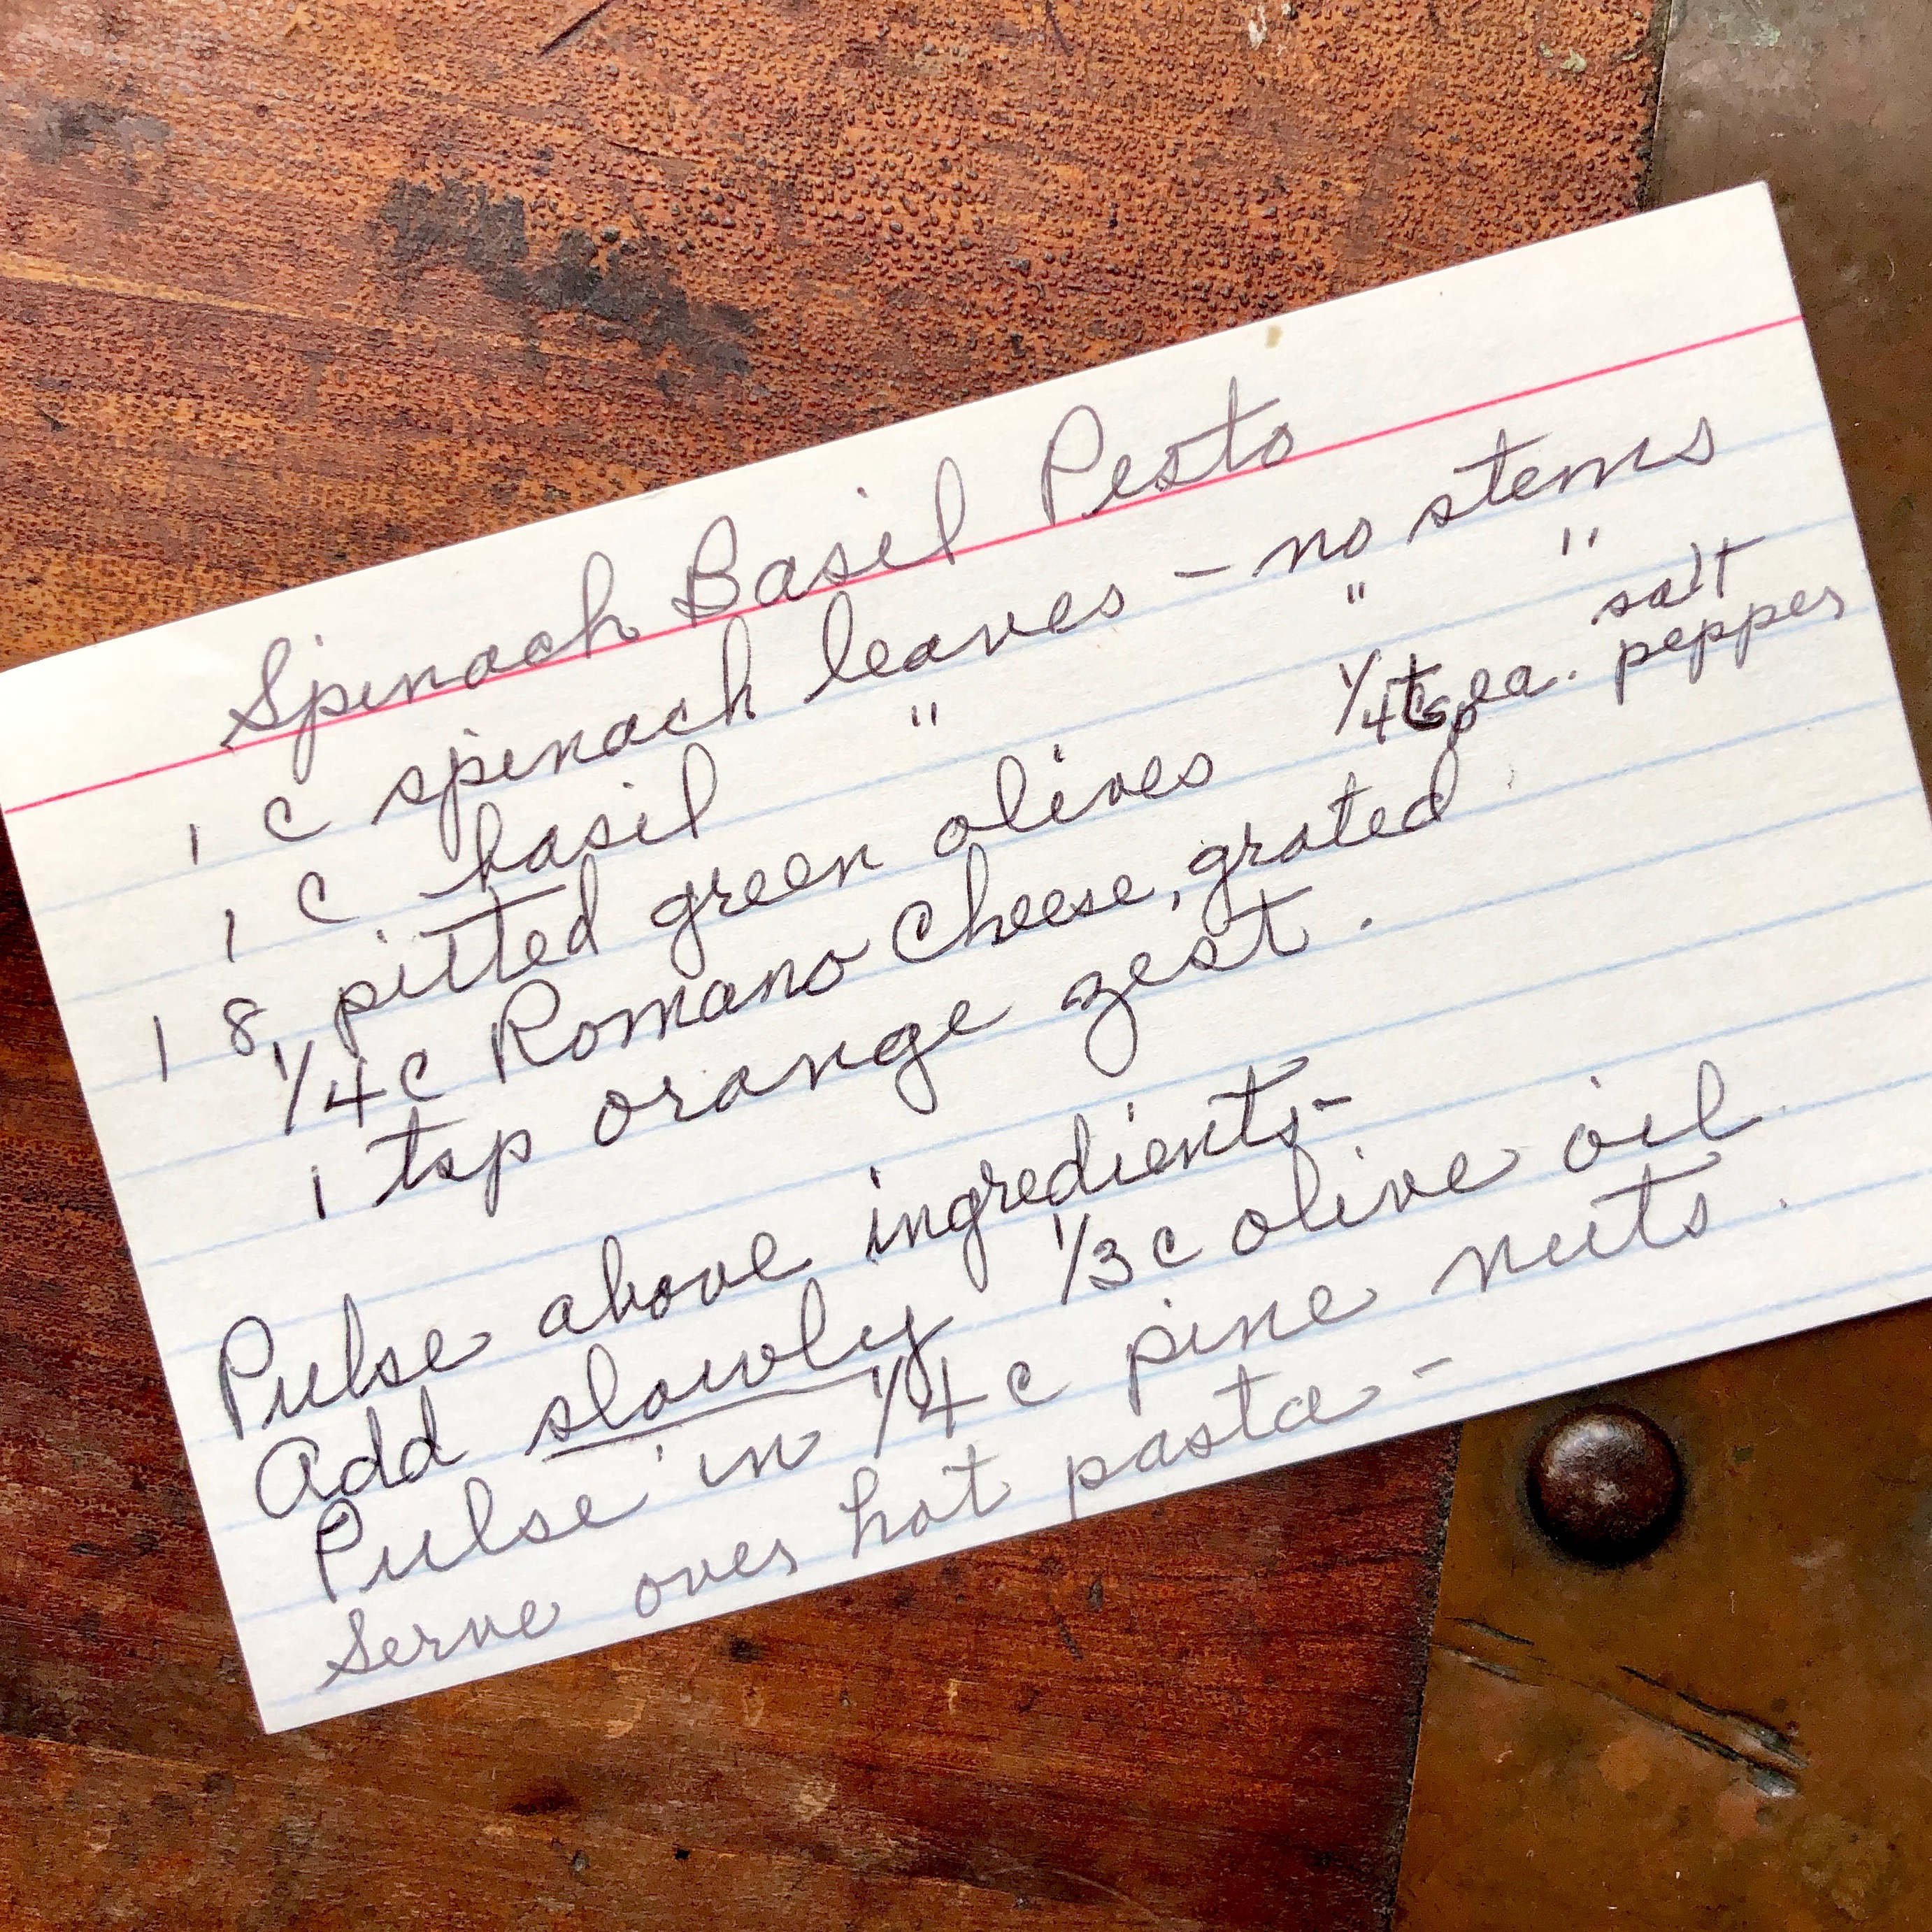 Spinach Basil Pesto
1 c spinach leaves - no stems
1 c basil " " "
18 pitted green olives 1/4 tsp ea. salt pepper
1/4 c Romano Cheese, grated
1 tsp orange zest.
Pulse above ingredients-
Add slowly 1/3 c olive oil
Pulse in 1/4 c pine nuts.
Serve over hot pasta -